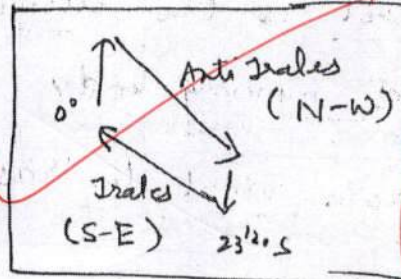 Anti Trades
(N-W)
0°
Trades
(S-E)
23½° S